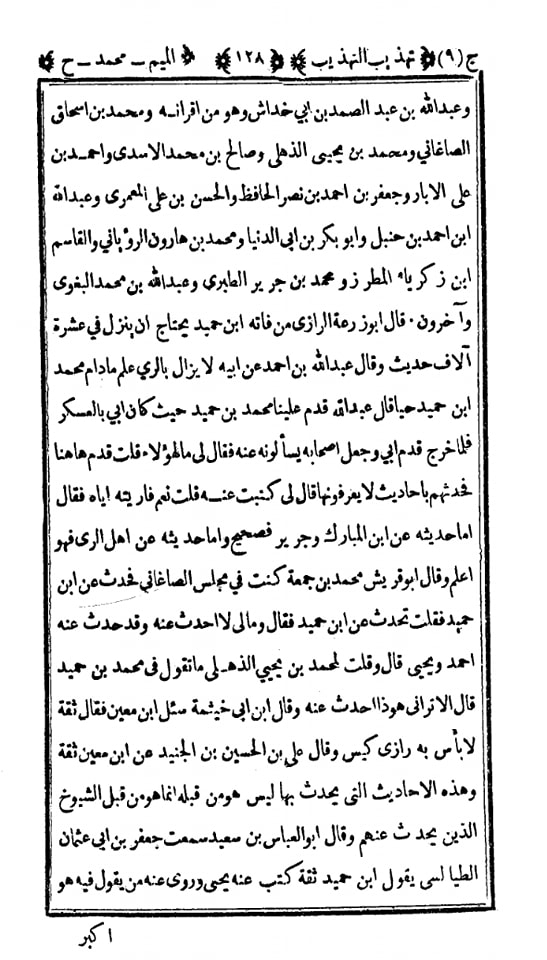 ج (٩) ﴿ تهذيب التهذيب ﴾ ﴿ ١٢٨ ﴾ ﴿ الميم - محمد - ح ﴾
وعبدالله بن عبد الصمد بن ابي خداش وهو من اقرانه ومحمد بن اسحاق
الصاغاني ومحمد بن يحيى الذهلى وصالح بن محمد الاسدى واحمد بن
على الابار وجعفر بن احمد بن نصر الحافظ والحسن بن على المعمرى وعبدالله
ابن احمد بن حنبل وابو بكر بن ابى الدنيا ومحمد بن هارون الرؤياني والقاسم
ابن زكرياء المطرز ومحمد بن جرير الطبرى وعبدالله بن محمد البغوى
وآخرون · قال ابوزرعة الرازى من فاته ابن حميد يحتاج ان ينزل في عشرة
آلاف حديث وقال عبدالله بن احمد عن ابيه لا يزال بالري علم مادام محمد
ابن حميد حيا قال عبدالله قدم علينا محمد بن حميد حيث كان ابي بالعسكر
فلما خرج قدم ابي وجعل اصحابه يسألونه عنه فقال لى مالهؤلاء قلت قدم هاهنا
فحدثهم باحاديث لا يعرفونها قال لى كتبت عنه قلت نعم فاريته اياه فقال
اما حديثه عن ابن المبارك وجرير فصحيح واما حديثه عن اهل الرى فهو
اعلم وقال ابو قريش محمد بن جمعة كنت في مجلس الصاغاني فحدث عن ابن
حميد فقلت تحدث عن ابن حميد فقال ومالى لا احدث عنه وقد حدث عنه
احمد ويحيى قال وقلت لمحمد بن يحيي الذهلى ما تقول فى محمد بن حميد
قال الاترانى هوذا احدث عنه وقال ابن ابى خيثمة سئل ابن معين فقال ثقة
لا بأس به رازى كيس وقال علي بن الحسين بن الجنيد عن ابن معين ثقة
وهذه الاحاديث التى يحدث بها ليس هو من قبله انما هو من قبل الشيوخ
الذين يحدث عنهم وقال ابو العباس بن سعيد سمعت جعفر بن ابي عثمان
الطيالسى يقول ابن حميد ثقة كتب عنه يحيى وروى عنه من يقول فيه هو
اكبر